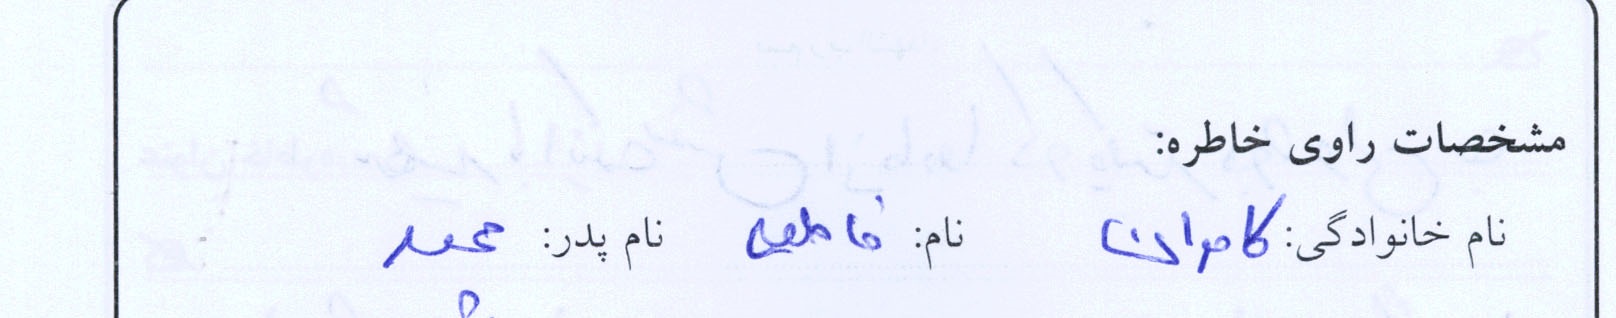 مشخصات راوی خاطره:
نام خانوادگی: کامرانی نام: فاطمه نام پدر: محمد